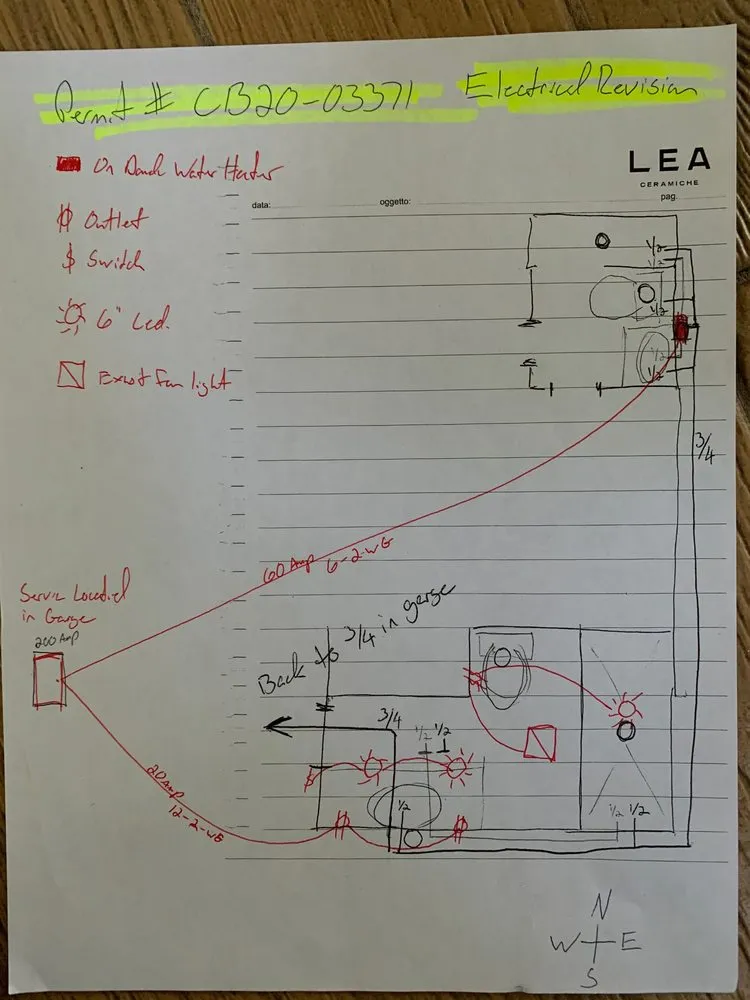 Permit # CB20-03371 Electrical Revision
On Dmad Water Heater
LEA
CERAMICHE
data: oggetto: pag.
Outlet
$ Switch
6" Led.
Exhst fan light
1/2
1/2
1/2
1/2
1/2
3/4
60 Amp 6-2-WG
Servic Located
in Garge
200 Amp
Back to 3/4 in garge
3/4
1/2 1/2
20 Amp
12-2-WG
1/2
1/2 1/2
N
W E
S